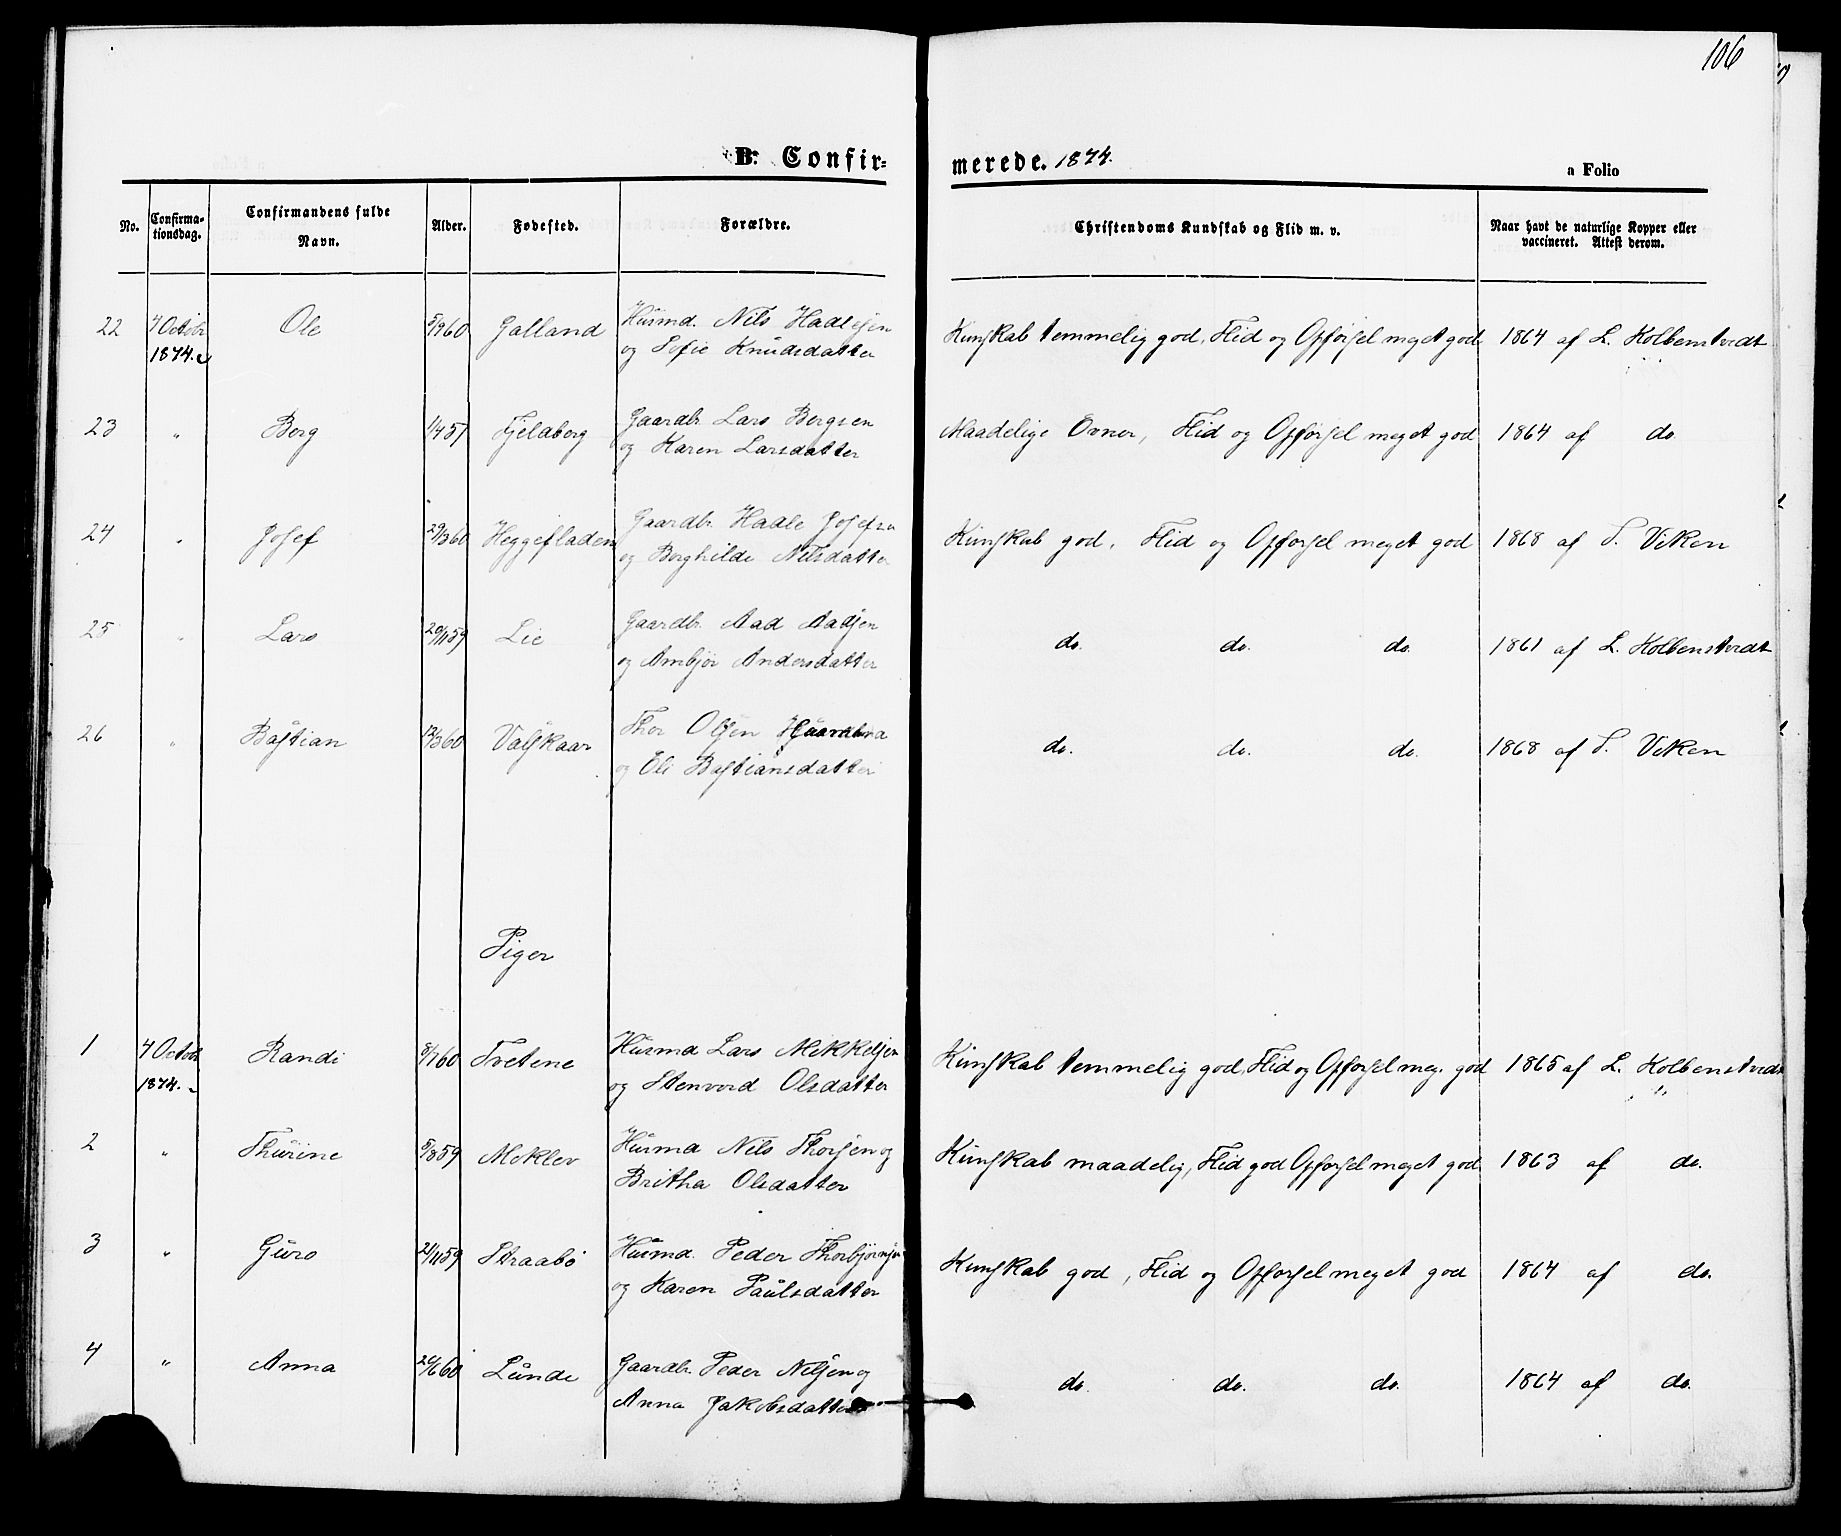 106
B. Confirmerede. 1874.
a Folio
No. Confirmationsdag. Confirmandens fulde Navn. Alder. Fødested. Forældre. Christendoms Kundskab og Flid m. v. Naar havt de naturlige Kopper eller vaccineret. Attest derom.
22 4 Octobr Ole 5/9 60 Galland Husmd. Nils Hadlejsen Kunskab temmelig god, Flid og Opførsel meget god 1864 af L. Kolbenstvedt
1874. og Sofie Knudsdatter
23 " Berg 1/4 57 Fjeldberg Gaardbr. Lars Bergsen Maadelige Evner, Flid og Opførsel meget god 1864 af do.
og Karen Larsdatter
24 " Josef 29/3 60 Heggefladen Gaardbr. Haale Josefsn Kunskab god, Flid og Opførsel meget god 1868 af S. Viken
og Borghilde Nilsdatter
25 " Lars 20/11 59 Lie Gaardbr. Aad Aadsen do. do. do. 1861 af L. Kolbenstvedt
og Ambjør Andersdatter
26 " Bastian 12/3 60 Valskaar Thor Olsen do. do. do. 1868 af S. Viken
og Eli Bastiansdatter
Piger
1 4 Octobr Randi 8/1 60 Tvetene Husmd Lars Mikkelsen Kunskab temmelig god, Flid og Opførsel meg. god 1865 af L. Kolbenstvedt
1874. og Stenvord Olsdatter
2 " Thurine 5/8 59 Meklev Husmd Nils Thorsen og Kunskab maadelig, Flid god Opførsel meget god 1863 af do.
Britha Olsdatter
3 " Guro 21/11 59 Straabø Husmd. Peder Thorbjørnsen Kunskab god, Flid og Opførsel meget god 1864 af do.
og Karen Paulsdatter
4 " Anna 20/6 60 Lunde Gaardbr. Peder Nilsen og do. do. do. 1864 af do.
Anna Jakobsdatter